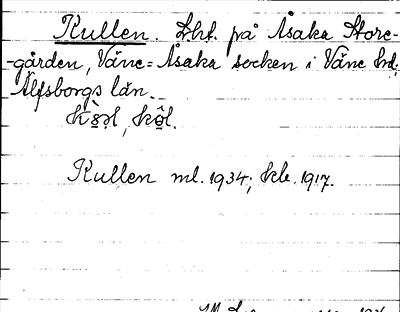 Kullen. Lht. på Åsaka Store-
-gården, Väne-Åsaka socken i Väne hd,
Älfsborgs län.
Kullen ml. 1934, skb. 1917.